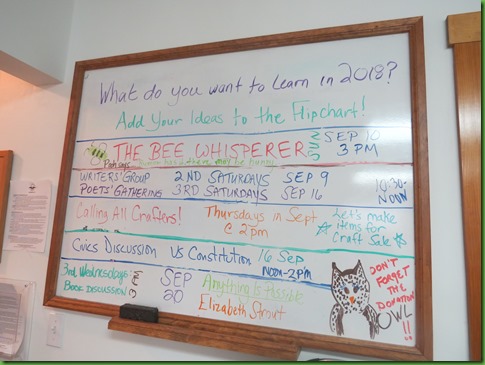 What do you want to Learn in 2018?
Add Your Ideas to the Flipchart!
THE BEE WHISPERER SUN SEP 10
3 PM
Pooh says
WRITERS' GROUP 2ND SATURDAYS SEP 9
POETS' GATHERING 3RD SATURDAYS SEP 16
10:30-
NOON
Calling All Crafters!
Thursdays in Sept
@ 2pm
Let's make
items for
Craft Sale
Civics Discussion US Constitution 16 Sep
NOON-2pm
3rd Wednesdays
Book Discussion
SEP
20
Anything Is Possible
Elizabeth Strout
DON'T
FORGET
THE
DONATION
OWL
!!